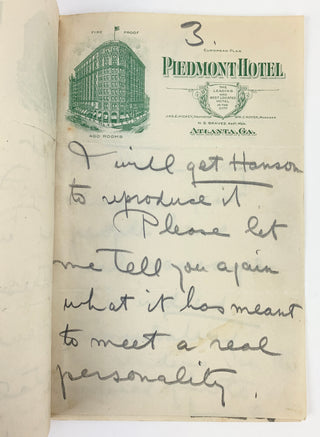 3.
FIRE PROOF
EUROPEAN PLAN
PIEDMONT HOTEL
THE
LEADING
AND
BEST LOCATED
HOTEL
IN THE
CITY
ATLANTA, GA.
400 ROOMS
I will get Hanson
to reproduce it.
Please let
me tell you again
what it has meant
to meet a real
personality.